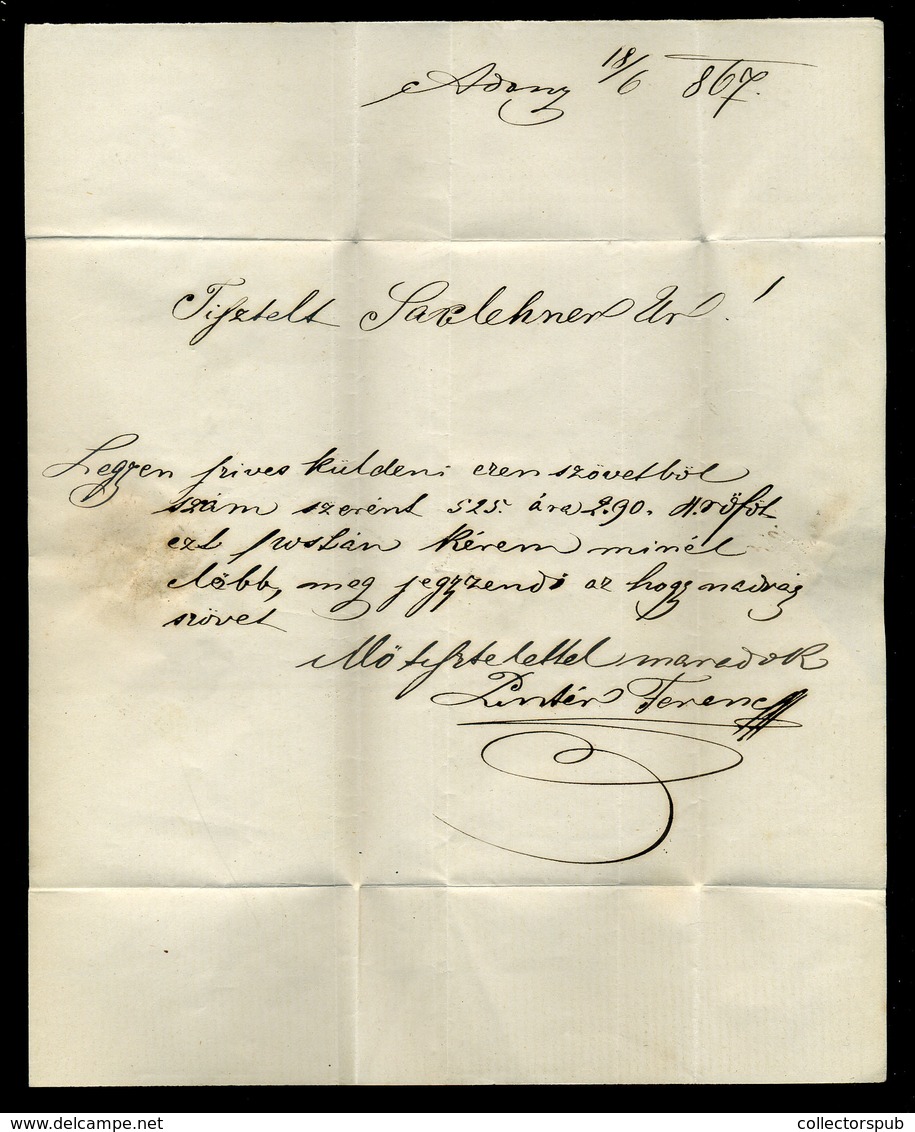 Adony 18/6 867.
Tisztelt Saxlehner Úr!
Legyen szives küldeni ezen szövetböl
szám szerént 525. ára 2.90. 4. röföt
ezt postán kérem minél
elöbb, meg jegyzendö az hogy nadrág
szövet
Mö tisztelettel maradok
Pintér Ferenc
collectorspub